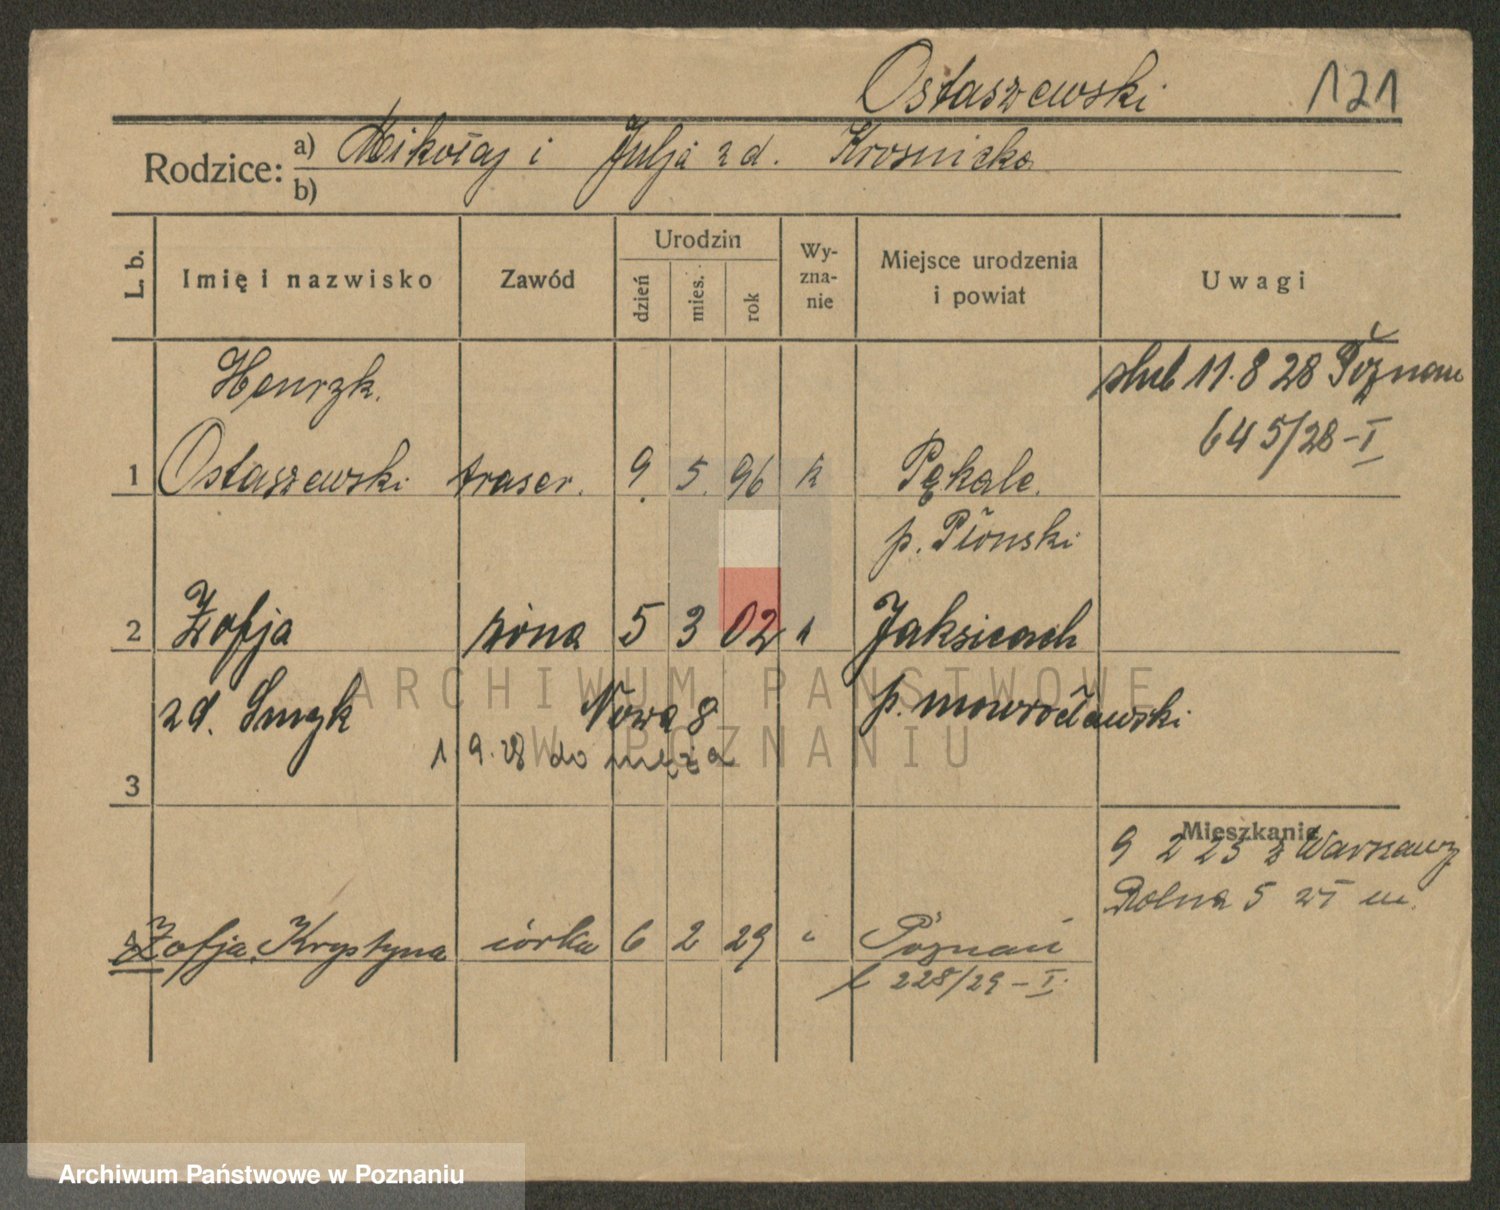 Ostaszewski 121
Rodzice: a) Mikołaj i Julja z d. Krosnicka
b)
L. b. Imię i nazwisko Zawód Urodzin dzień mies. rok Wyznanie Miejsce urodzenia i powiat Uwagi
Henryk ślub 11.8 28 Poznań
645/28-I
1 Ostaszewski traser. 9. 5. 96 k Pękale.
p. Płoński
2 Zofja żona 5 3 02 k Jaksicach
zd. Smyk Nowa 8 p. inowrocławski
1 9. 28 do męża
3
Mieszkanie
9 2 23 z Warszawy
Rolna 5 m.
Zofja Krystyna córka 6 2 29 " Poznań
228/29-I
ARCHIWUM PAŃSTWOWE
W POZNANIU
Archiwum Państwowe w Poznaniu